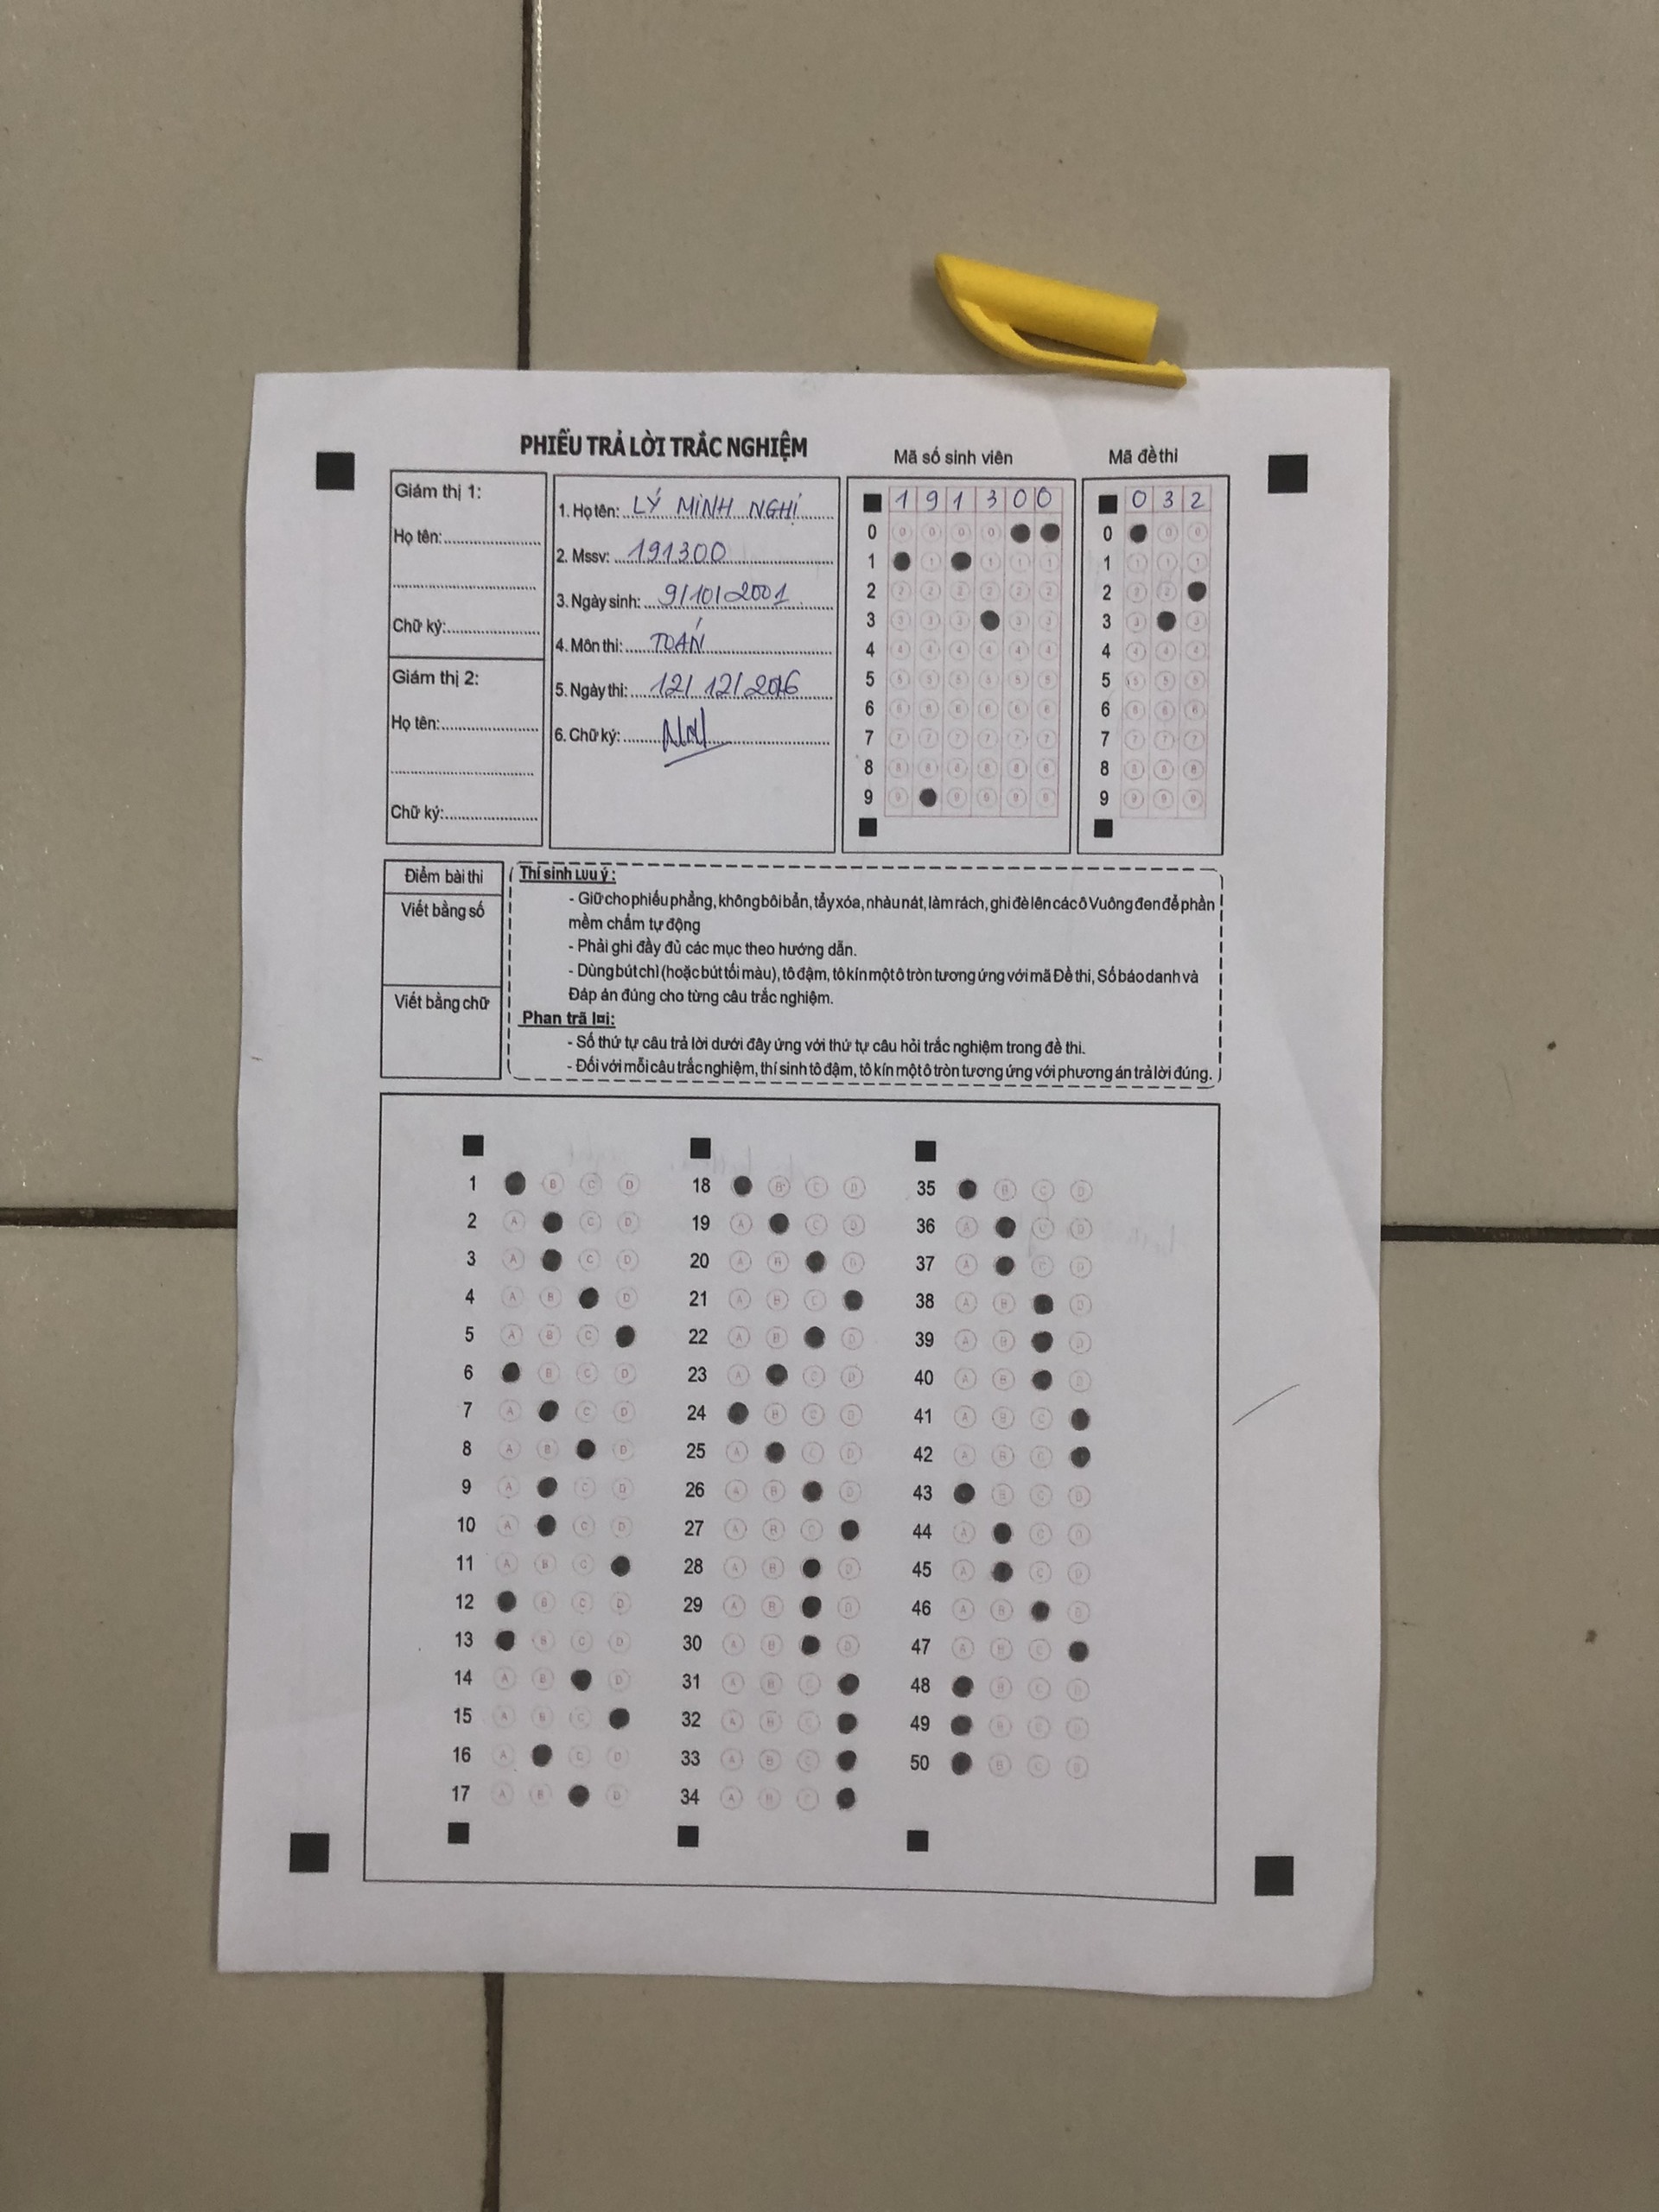 PHIẾU TRẢ LỜI TRẮC NGHIỆM
Giám thị 1:
Họ tên:
Chữ ký:
Giám thị 2:
Họ tên:
Chữ ký:
1. Họ tên: LÝ MINH NGHI
2. Mssv: 191300
3. Ngày sinh: 9/10/2001
4. Môn thi: TOÁN
5. Ngày thi: 12/12/2016
6. Chữ ký:
Mã số sinh viên
1 9 1 3 0 0
0
1
2
3
4
5
6
7
8
9
Mã đề thi
0 3 2
0
1
2
3
4
5
6
7
8
9
Điểm bài thi
Viết bằng số
Viết bằng chữ
Thí sinh Lưu ý:
- Giữ cho phiếu phẳng, không bôi bẩn, tẩy xóa, nhàu nát, làm rách, ghi đè lên các ô Vuông đen để phần
mềm chấm tự động
- Phải ghi đầy đủ các mục theo hướng dẫn.
- Dùng bút chì (hoặc bút tối màu), tô đậm, tô kín một ô tròn tương ứng với mã Đề thi, Số báo danh và
Đáp án đúng cho từng câu trắc nghiệm.
Phan trã lại:
- Số thứ tự câu trả lời dưới đây ứng với thứ tự câu hỏi trắc nghiệm trong đề thi.
- Đối với mỗi câu trắc nghiệm, thí sinh tô đậm, tô kín một ô tròn tương ứng với phương án trả lời đúng.
1 B C D
2 A C D
3 A C D
4 A B D
5 A B C
6 B C D
7 A C D
8 A B D
9 A C D
10 A C D
11 A B C
12 B C D
13 B C D
14 A B D
15 A B C
16 A C D
17 A B D
18 B C D
19 A C D
20 A B D
21 A B C
22 A B D
23 A C D
24 B C D
25 A C D
26 A B D
27 A B C
28 A B D
29 A B D
30 A B D
31 A B C
32 A B C
33 A B C
34 A B C
35 B C D
36 A C D
37 A C D
38 A B D
39 A B D
40 A B D
41 A B C
42 A B C
43 B C D
44 A C D
45 A C D
46 A B D
47 A B C
48 B C D
49 B C D
50 B C D